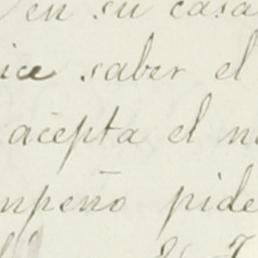 en su casa
ice saber el
acepta el n
mpeño pide